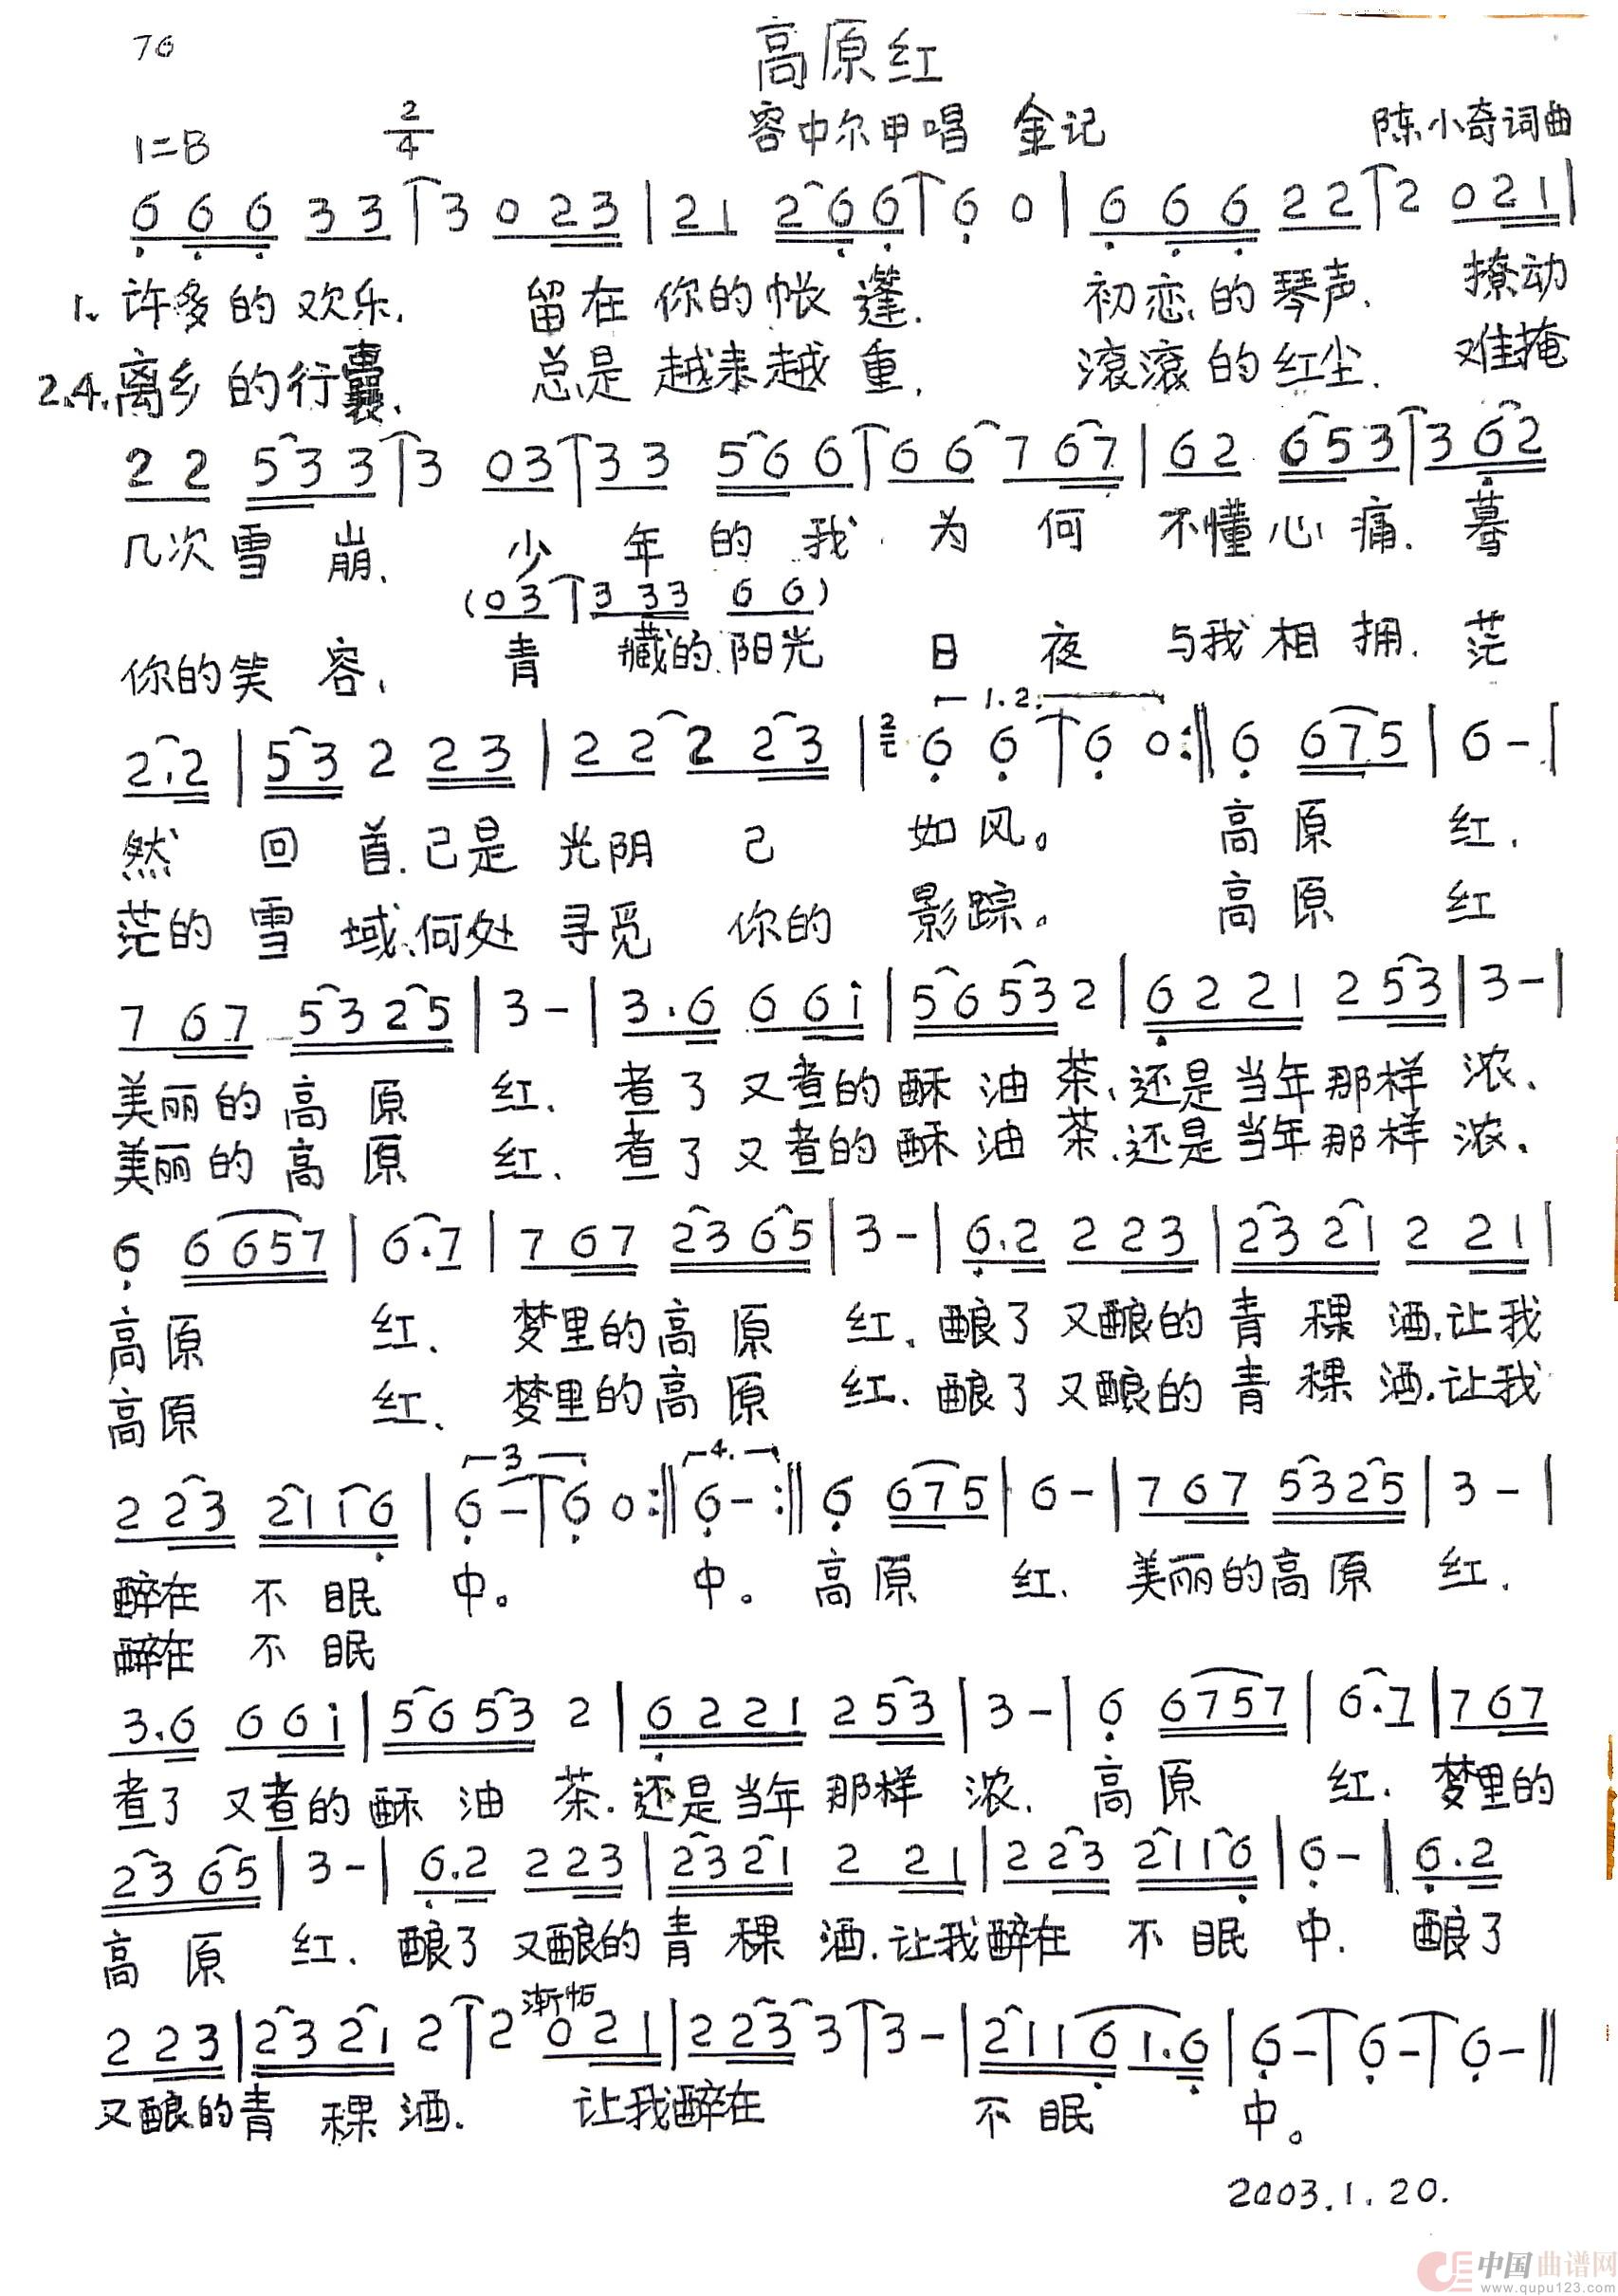 76
高原红
1=B 2/4 容中尔甲唱 金记 陈小奇词曲
6 6 6 3 3 | 3 0 2 3 | 2 1 2 6 6 | 6 0 | 6 6 6 2 2 | 2 0 2 1 |
1. 许多的欢乐. 留在你的帐篷. 初恋的琴声. 撩动
2.4. 离乡的行囊. 总是越来越重. 滚滚的红尘. 难掩
2 2 5 3 3 | 3 0 3 | 3 3 5 6 6 | 6 6 7 6 7 | 6 2 6 5 3 | 3 6 2
几次雪崩. 少年的我 为何不懂心痛. 蓦
(0 3 | 3 3 3 6 6)
你的笑容. 青藏的阳光 日夜与我相拥. 茫
1.2.
2.2 | 5 3 2 2 3 | 2 2 2 2 3 | 2/4 6 6 | 6 0 :‖ 6 6 7 5 | 6 - |
然回首.已是光阴已如风。 高原红.
茫的雪域.何处寻觅你的影踪。 高原红
7 6 7 5 3 2 5 | 3 - | 3.6 6 6 i | 5 6 5 3 2 | 6 2 2 1 2 5 3 | 3 - |
美丽的高原红. 煮了又煮的酥油茶.还是当年那样浓.
美丽的高原红. 煮了又煮的酥油茶.还是当年那样浓.
6 6 6 5 7 | 6.7 | 7 6 7 2 3 6 5 | 3 - | 6.2 2 2 3 | 2 3 2 1 2 2 1 |
高原红. 梦里的高原红. 酿了又酿的青稞酒.让我
高原红. 梦里的高原红. 酿了又酿的青稞酒.让我
3 4.
2 2 3 2 1 1 6 | 6 - | 6 0 :‖ 6 - :‖ 6 6 7 5 | 6 - | 7 6 7 5 3 2 5 | 3 - |
醉在不眠中。 中。高原红. 美丽的高原红.
醉在不眠
3.6 6 6 i | 5 6 5 3 2 | 6 2 2 1 2 5 3 | 3 - | 6 6 7 5 7 | 6.7 | 7 6 7
煮了又煮的酥油茶.还是当年那样浓. 高原红. 梦里的
2 3 6 5 | 3 - | 6.2 2 2 3 | 2 3 2 1 2 2 1 | 2 2 3 2 1 1 6 | 6 - | 6.2
高原红. 酿了又酿的青稞酒.让我醉在不眠中. 酿了
渐慢
2 2 3 | 2 3 2 1 2 | 2 0 2 1 | 2 2 3 3 | 3 - | 2 1 1 6 1.6 | 6 - | 6 - | 6 - ‖
又酿的青稞酒. 让我醉在不眠中。
2003.1.20.
中国曲谱网
www.qupu123.com